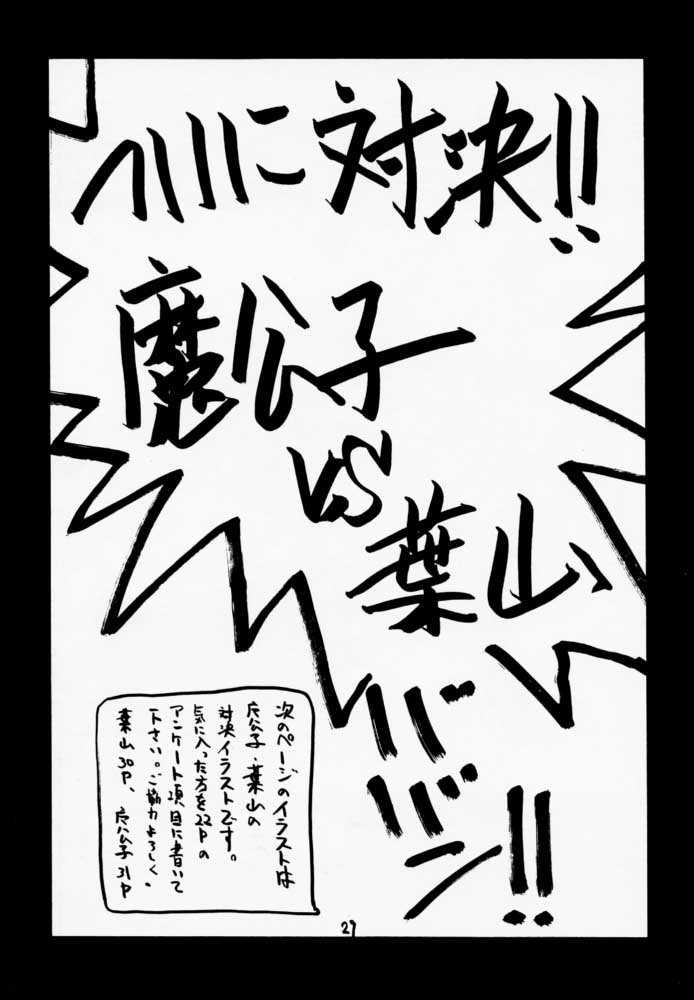 べに対決!!
魔公子
VS
葉山
ババン!!
次のページのイラストは
広公子・葉山の
対決イラストです。
気に入った方を22Pの
アンケート項目に書いて
下さい。ご協力よろしく。
葉山30P、広公子31P
29